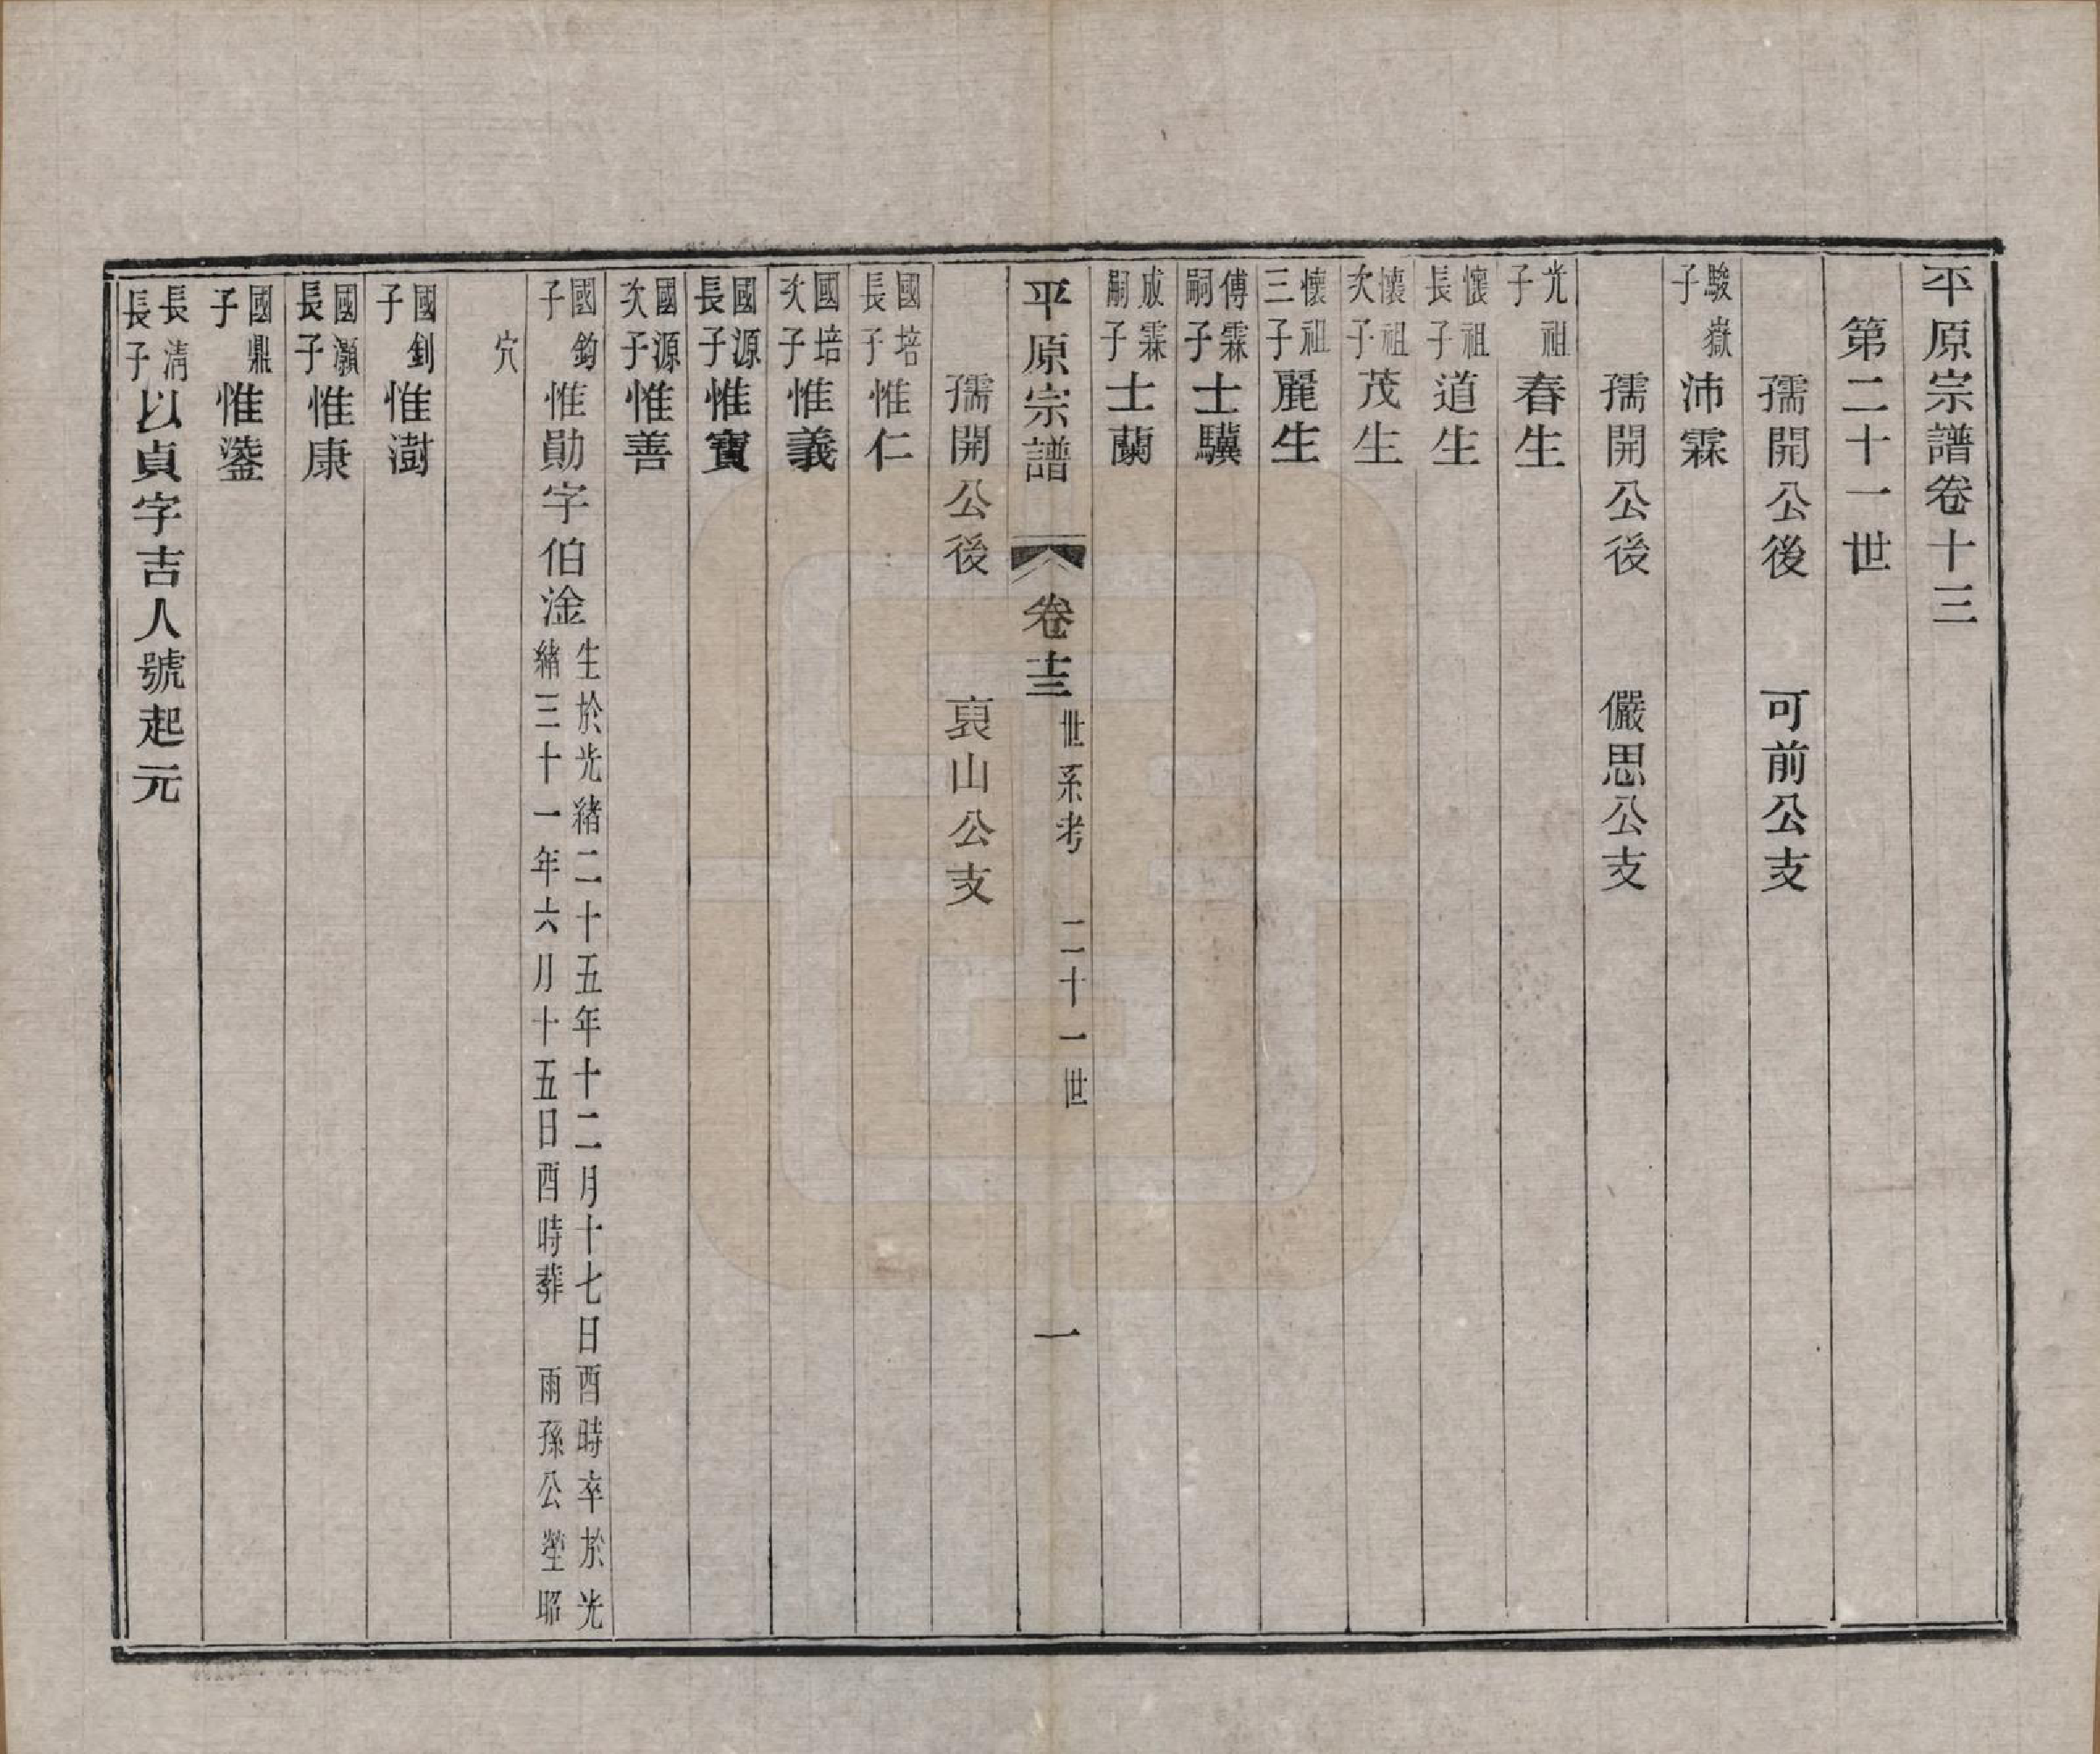 平原宗譜卷十三
第二十一世
孺開公後 可前公支
駿嶽子沛霖
孺開公後 儼思公支
光祖子春生
懷祖長子道生
懷祖次子茂生
懷祖三子麗生
傅霖嗣子士驥
成霖嗣子士蘭
平原宗譜 卷十三 世系考 二十一世 一
孺開公後 裒山公支
國培長子惟仁
國培次子惟義
國源長子惟寶
國源次子惟善
國鈞子惟勛字伯淦生於光緒二十五年十二月十七日酉時卒於光緒三十一年六月十五日酉時葬 雨孫公塋昭
穴
國釗子惟澍
國灝長子惟康
國鼎子惟鎏
長清長子以貞字吉人號起元